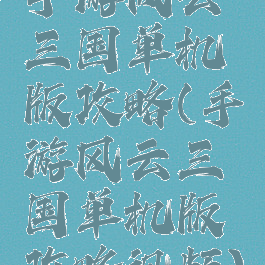 手游风云
三国单机
版攻略(手
游风云三
国单机版
攻略视频)